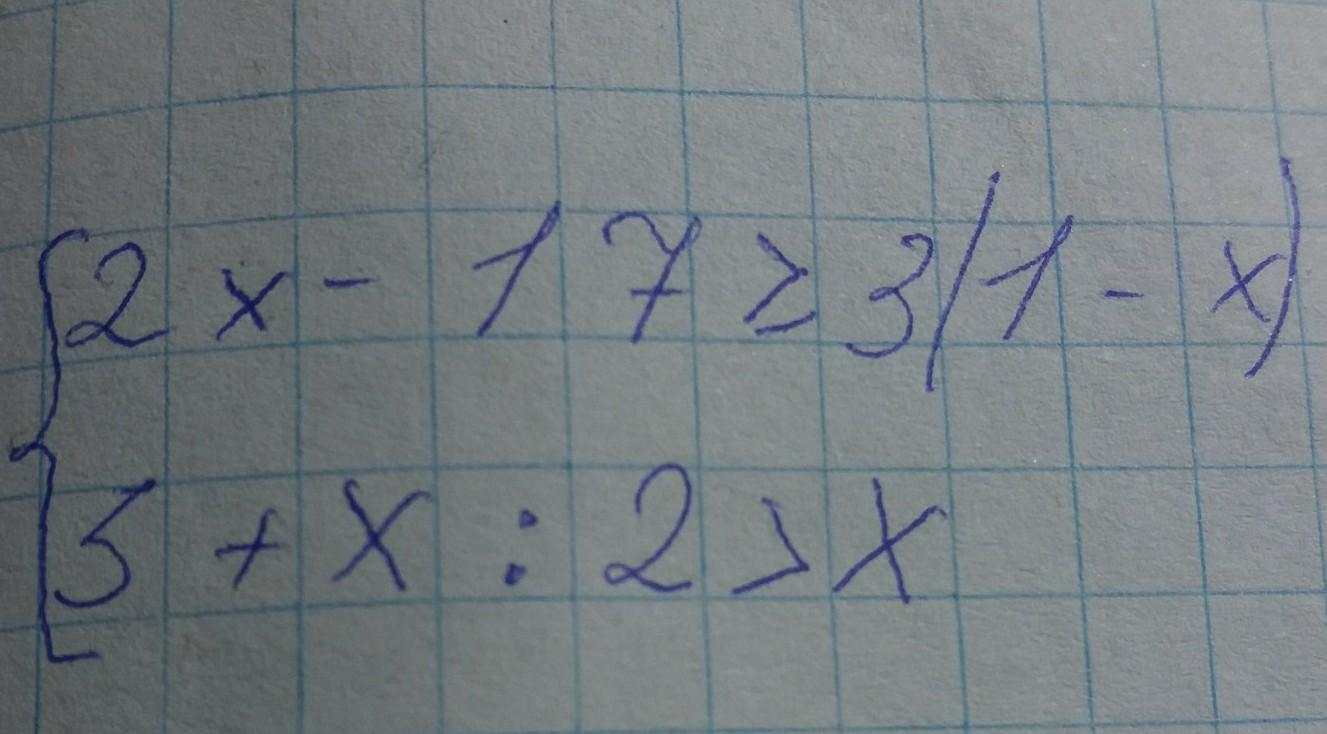 {2x - 17 ≥ 3(1 - x)
5 + x : 2 > x